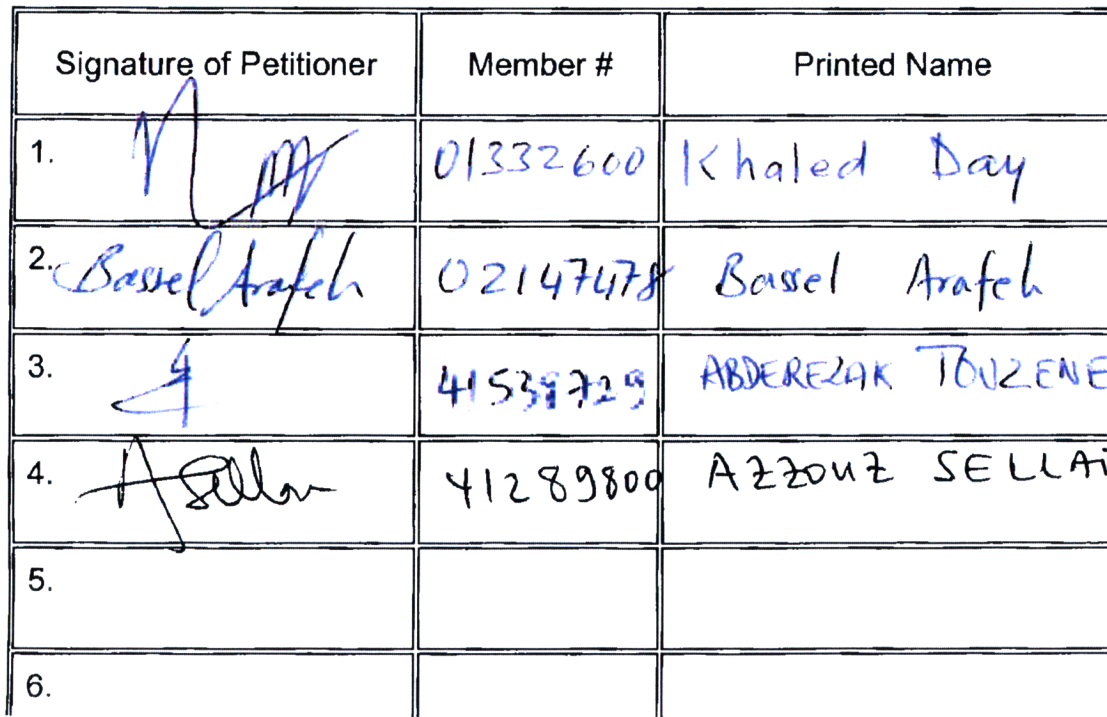 Signature of Petitioner Member # Printed Name
1. 01332600 Khaled Day
2. Bassel Arafeh 02147478 Bassel Arafeh
3. 41539729 ABDEREZAK TOUZENE
4. A Sellam 41289800 AZZOUZ SELLAI
5.
6.